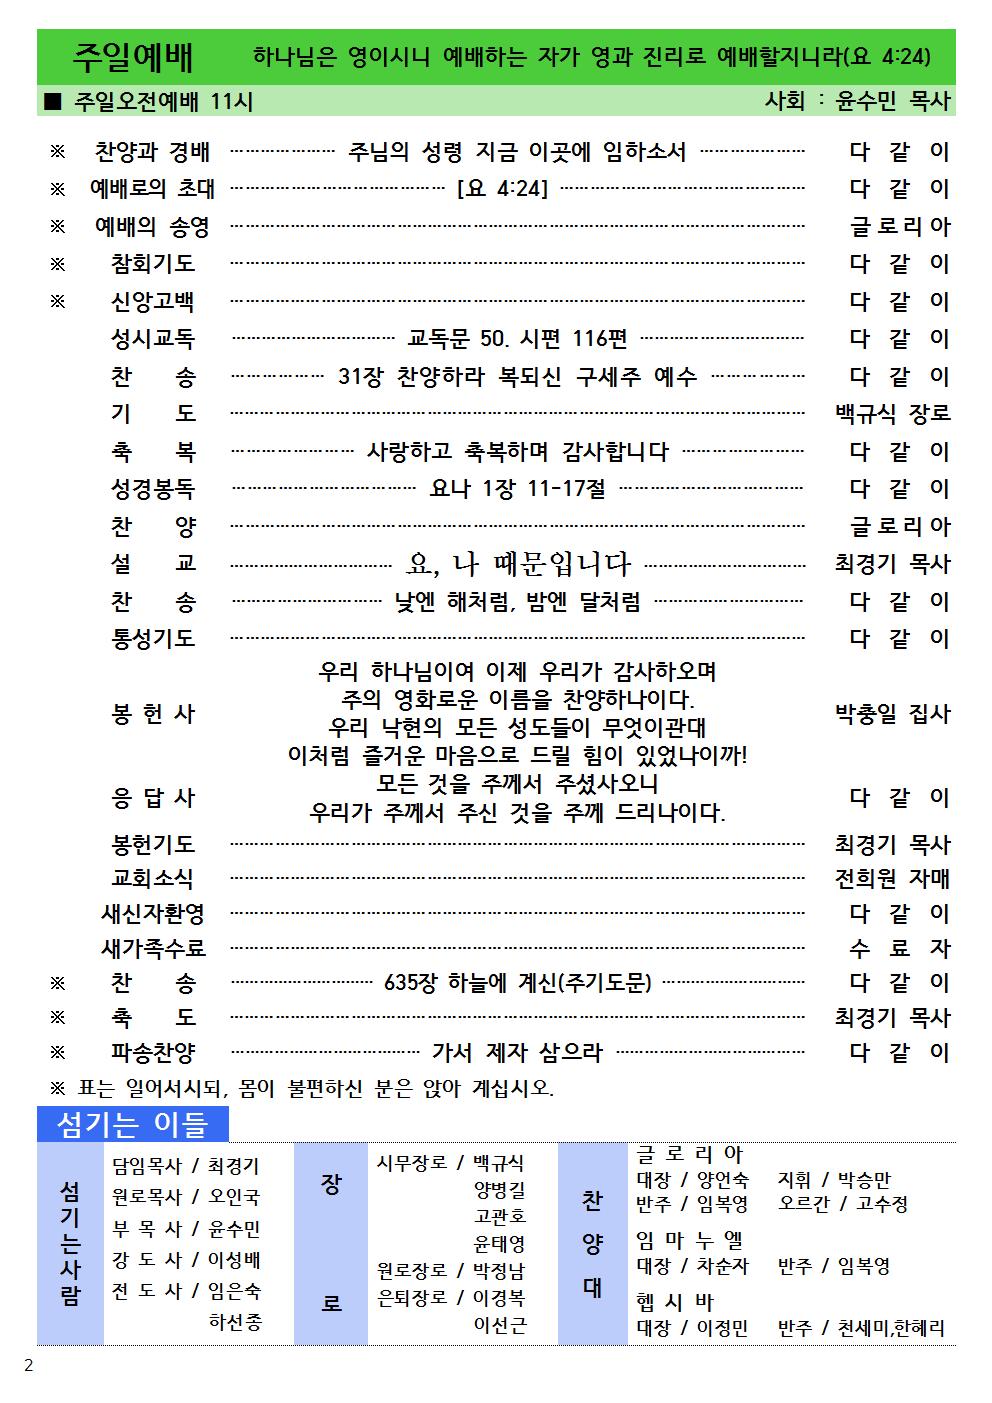 주일예배 하나님은 영이시니 예배하는 자가 영과 진리로 예배할지니라(요 4:24)
■ 주일오전예배 11시 사회 : 윤수민 목사
※ 찬양과 경배 ………………… 주님의 성령 지금 이곳에 임하소서 ………………… 다 같 이
※ 예배로의 초대 ………………… [요 4:24] ………………… 다 같 이
※ 예배의 송영 ………………… 글로리아
※ 참회기도 ………………… 다 같 이
※ 신앙고백 ………………… 다 같 이
성시교독 ………………… 교독문 50. 시편 116편 ………………… 다 같 이
찬 송 ………………… 31장 찬양하라 복되신 구세주 예수 ………………… 다 같 이
기 도 ………………… 백규식 장로
축 복 ………………… 사랑하고 축복하며 감사합니다 ………………… 다 같 이
성경봉독 ………………… 요나 1장 11-17절 ………………… 다 같 이
찬 양 ………………… 글로리아
설 교 ………………… 요, 나 때문입니다 ………………… 최경기 목사
찬 송 ………………… 낮엔 해처럼, 밤엔 달처럼 ………………… 다 같 이
통성기도 ………………… 다 같 이
우리 하나님이여 이제 우리가 감사하오며
주의 영화로운 이름을 찬양하나이다.
봉 헌 사 박충일 집사
우리 낙현의 모든 성도들이 무엇이관대
이처럼 즐거운 마음으로 드릴 힘이 있었나이까!
모든 것을 주께서 주셨사오니
응 답 사 다 같 이
우리가 주께서 주신 것을 주께 드리나이다.
봉헌기도 ………………… 최경기 목사
교회소식 ………………… 전희원 자매
새신자환영 ………………… 다 같 이
새가족수료 ………………… 수 료 자
※ 찬 송 ………………… 635장 하늘에 계신(주기도문) ………………… 다 같 이
※ 축 도 ………………… 최경기 목사
※ 파송찬양 ………………… 가서 제자 삼으라 ………………… 다 같 이
※ 표는 일어서시되, 몸이 불편하신 분은 앉아 계십시오.
섬기는 이들
섬기는사람
담임목사 / 최경기
원로목사 / 오인국
부 목 사 / 윤수민
강 도 사 / 이성배
전 도 사 / 임은숙
하선종
장로
시무장로 / 백규식
양병길
고관호
윤태영
원로장로 / 박정남
은퇴장로 / 이경복
이선근
찬양대
글 로 리 아
대장 / 양언숙 지휘 / 박승만
반주 / 임복영 오르간 / 고수정
임 마 누 엘
대장 / 차순자 반주 / 임복영
헵 시 바
대장 / 이정민 반주 / 천세미,한혜리
2